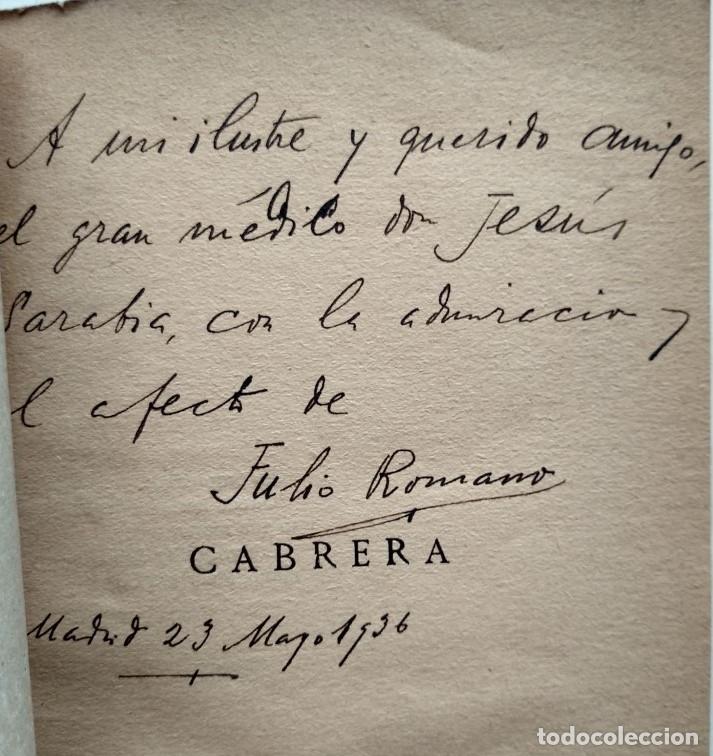 A mi ilustre y querido amigo,
el gran médico don Jesús
Sarabia, con la admiracion y
el afecto de
Julio Romano
CABRERA
Madrid 23 Mayo 1936
todocoleccion